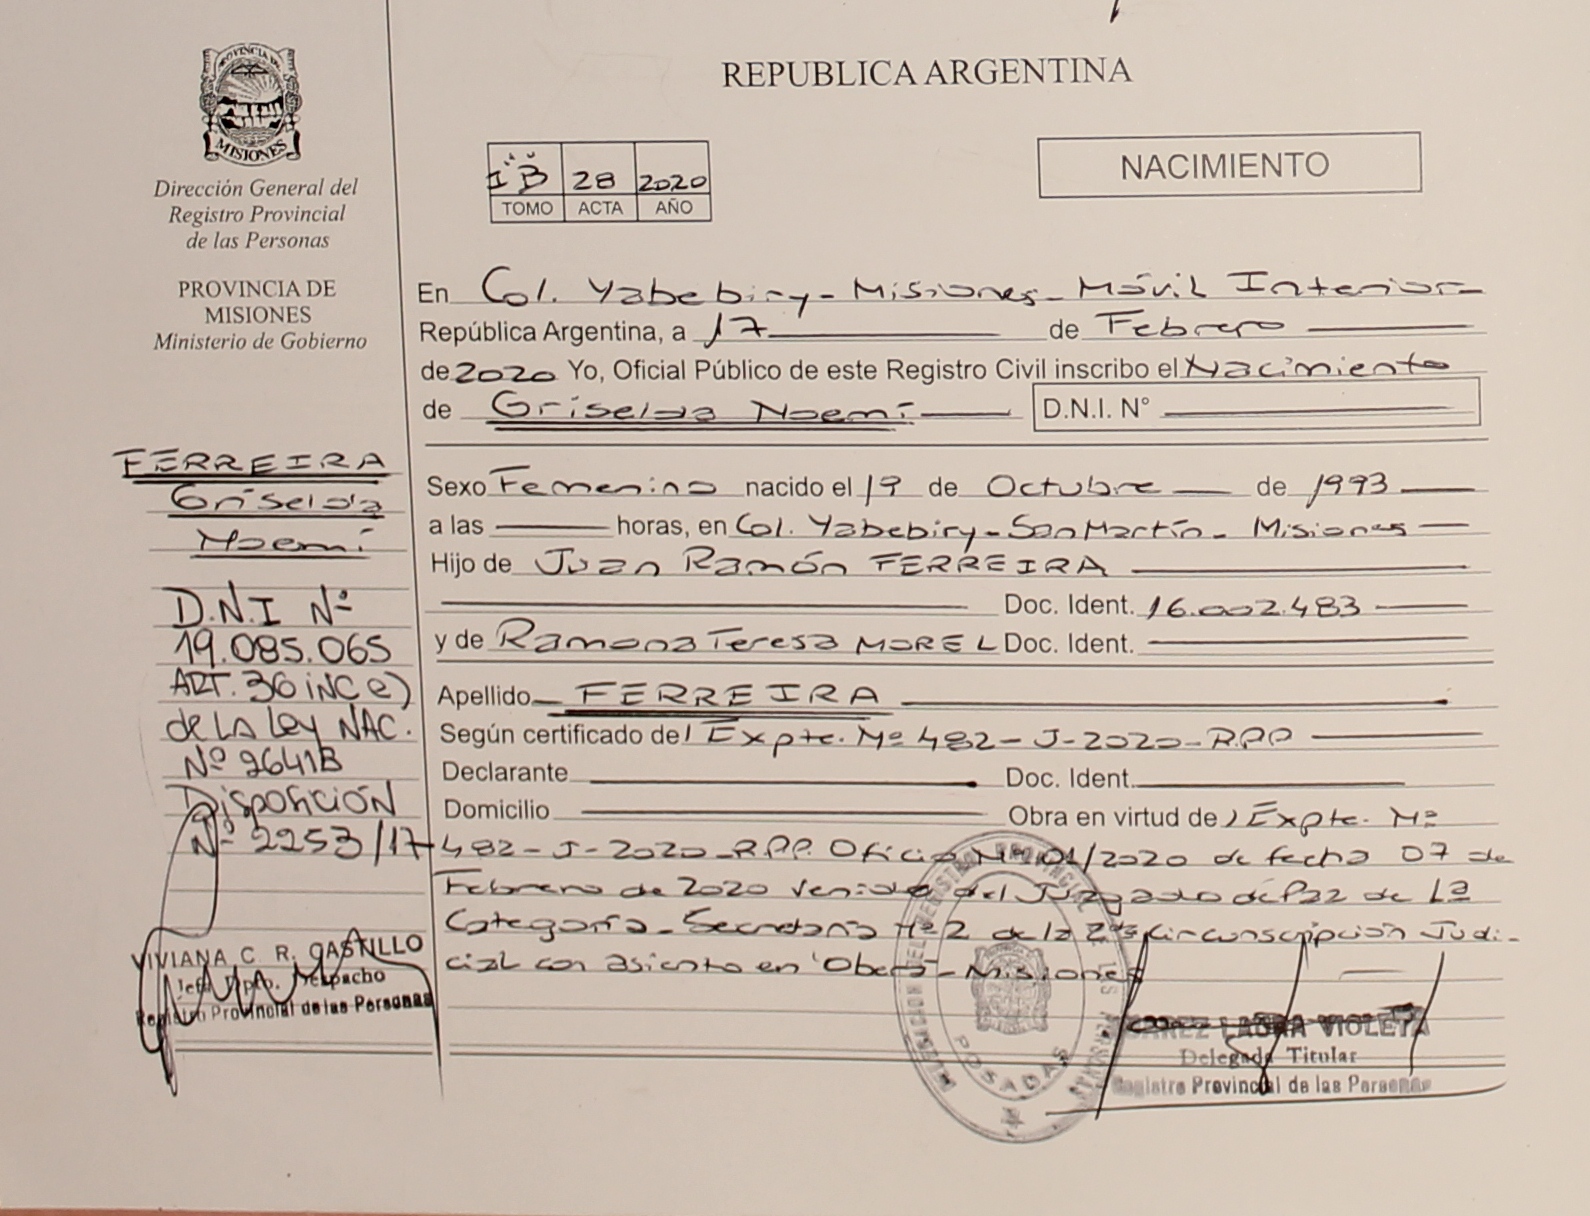 PROVINCIA DE
MISIONES
Dirección General del
Registro Provincial
de las Personas
PROVINCIA DE
MISIONES
Ministerio de Gobierno
FERREIRA
Griselda
Noemí
D.N.I Nº
19.085.065
ART. 36 inc e)
de LA Ley NAC.
Nº 26413
Disposición
Nº 2253/17
VIVIANA C. R. GASTILLO
Jefa Dpto. Despacho
Registro Provincial de las Personas
REPUBLICA ARGENTINA
28 2020
TOMO ACTA AÑO
NACIMIENTO
En Col. Yabebiry - Misiones - Móvil Interior
República Argentina, a 17 de Febrero
de 2020 Yo, Oficial Público de este Registro Civil inscribo el Nacimiento
de Griselda Noemí D.N.I. N°
Sexo Femenino nacido el 19 de Octubre de 1993
a las horas, en Col. Yabebiry - San Martín - Misiones
Hijo de Juan Ramón FERREIRA
Doc. Ident. 16.002.483
y de Ramona Teresa MOREL Doc. Ident.
Apellido FERREIRA
Según certificado de Expte. Nº 482-J-2020-R.P.P
Declarante Doc. Ident.
Domicilio Obra en virtud de Expte. Nº
482-J-2020-R.P.P. Oficio Nº 01/2020 de fecha 07 de
Febrero de 2020 venido del Juzgado de Paz de 1ª
Categoría - Secretaría Nº 2 de la 2da Circunscripción Judi-
cial con asiento en Oberá - Misiones
POSADAS
LAURA VIOLETA
Delegada Titular
Registro Provincial de las Personas